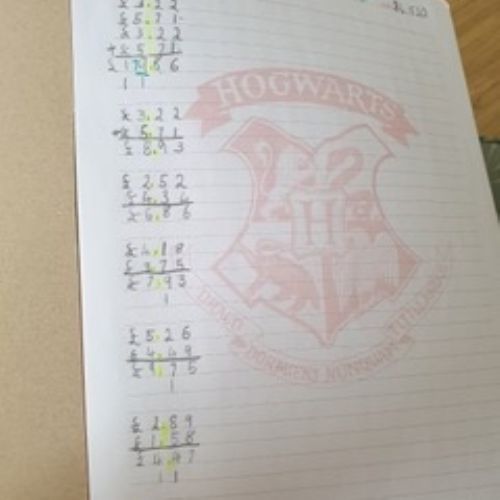 £ 3.22
£ 5.71
£ 3.22
+ £ 5.71
£ 17.86
1 1
£ 3.22
+ £ 5.71
£ 8.93
£ 2.52
£ 4.34
£ 6.86
£ 4.18
£ 3.75
£ 7.93
1
£ 5.26
£ 4.49
£ 9.75
1
£ 2.89
£ 1.58
£ 4.47
1 1
HOGWARTS
H
DRACO DORMIENS NUNQUAM TITILLANDUS